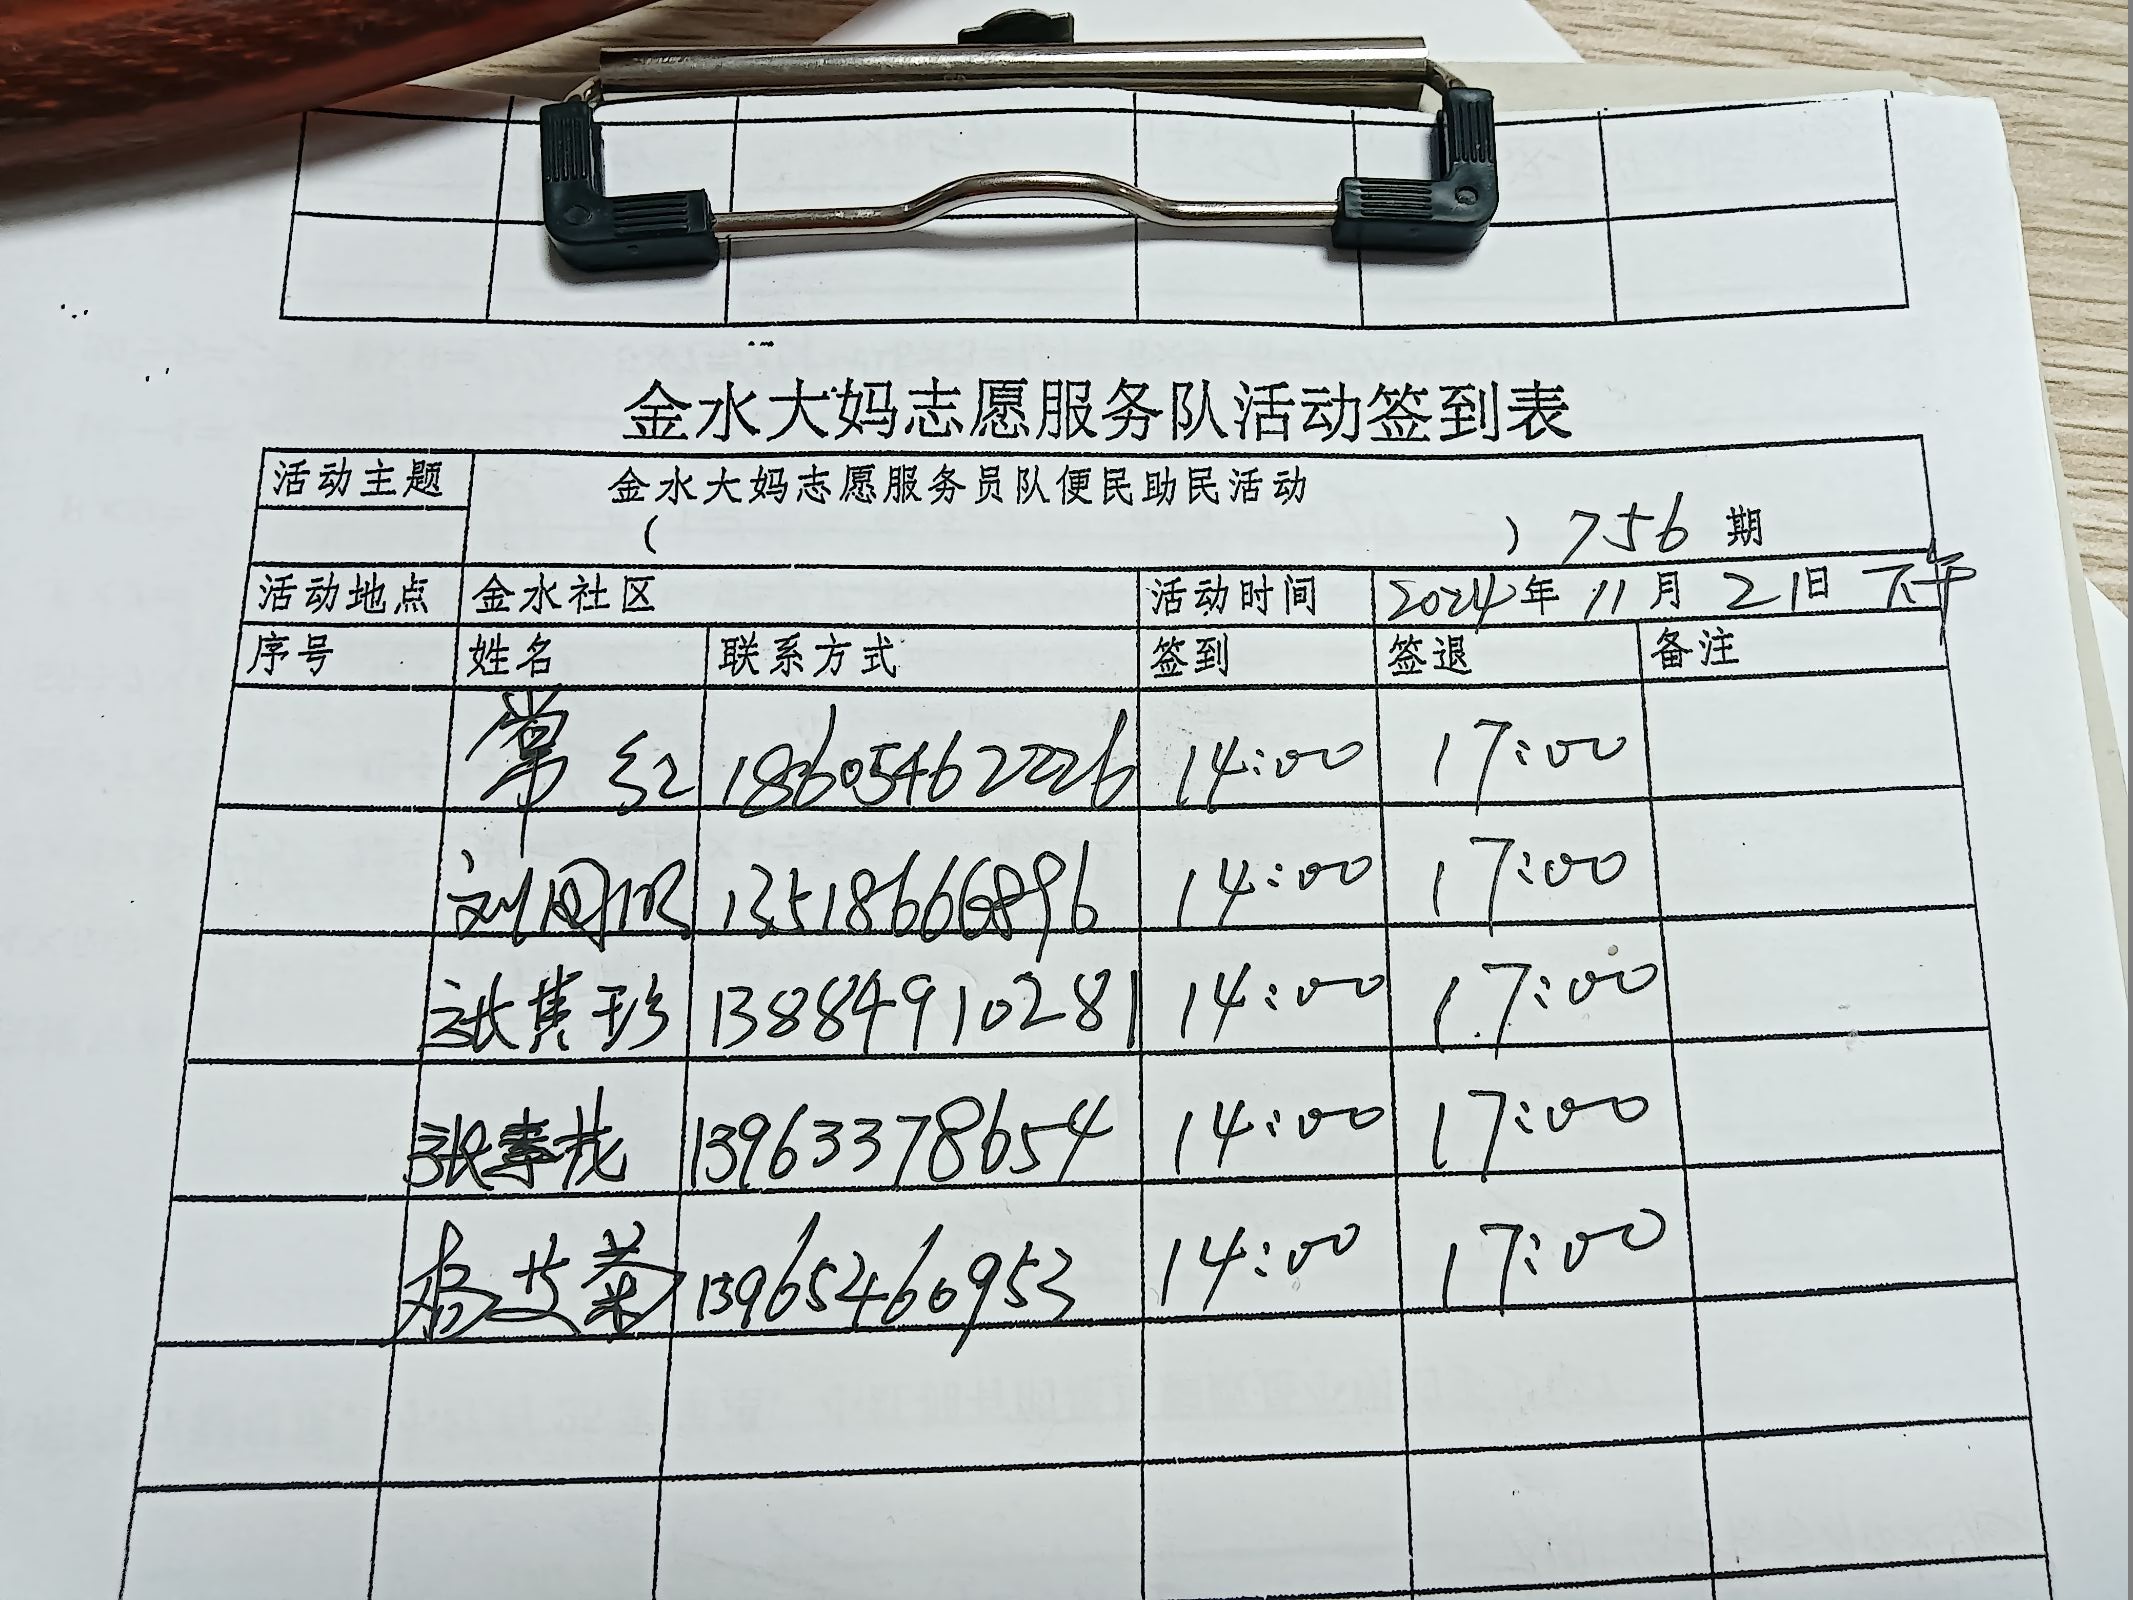 金水大妈志愿服务队活动签到表
活动主题 金水大妈志愿服务员队便民助民活动
( ) 756 期
活动地点 金水社区 活动时间 2024年 11月 21日 下午
序号 姓名 联系方式 签到 签退 备注
常红 18605462226 14:00 17:00
刘 13518666896 14:00 17:00
张 珍 13884910281 14:00 17:00
张 13963378654 14:00 17:00
杨 菊 13965460953 14:00 17:00